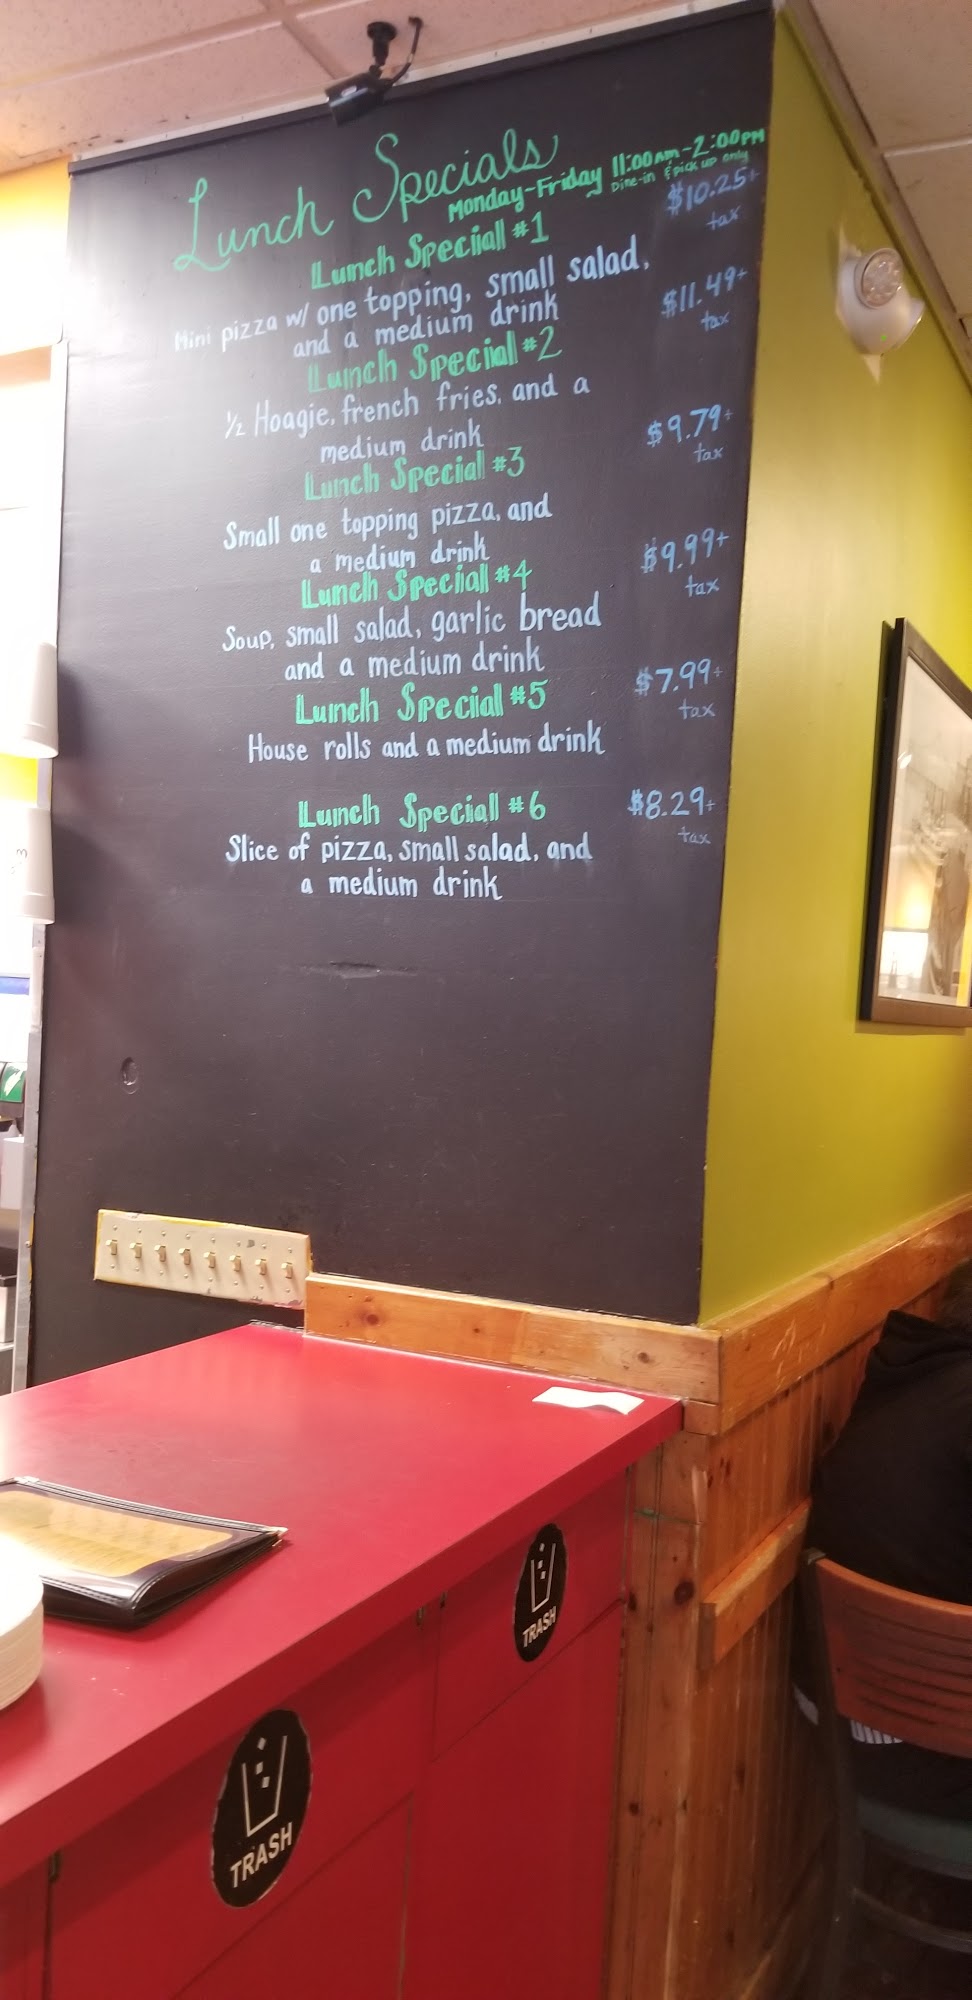 Lunch Specials
Monday-Friday 11:00AM-2:00PM
Dine-in & pick up only
Lunch Special #1 $10.25+
tax
Mini pizza w/ one topping, small salad,
and a medium drink
Lunch Special #2 $11.49+
tax
½ Hoagie, french fries, and a
medium drink
Lunch Special #3 $9.79+
tax
Small one topping pizza, and
a medium drink
Lunch Special #4 $9.99+
tax
Soup, small salad, garlic bread
and a medium drink
Lunch Special #5 $7.99+
tax
House rolls and a medium drink
Lunch Special #6 $8.29+
tax
Slice of pizza, small salad, and
a medium drink
TRASH
TRASH